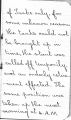 of Tanks only for
some unknown reason
the tanks could not
be brought up in
time, the attack was
called off temporarily
and an orderly retire
ment effected. The
same positions were
taken up the next
morning at 4 A.M.